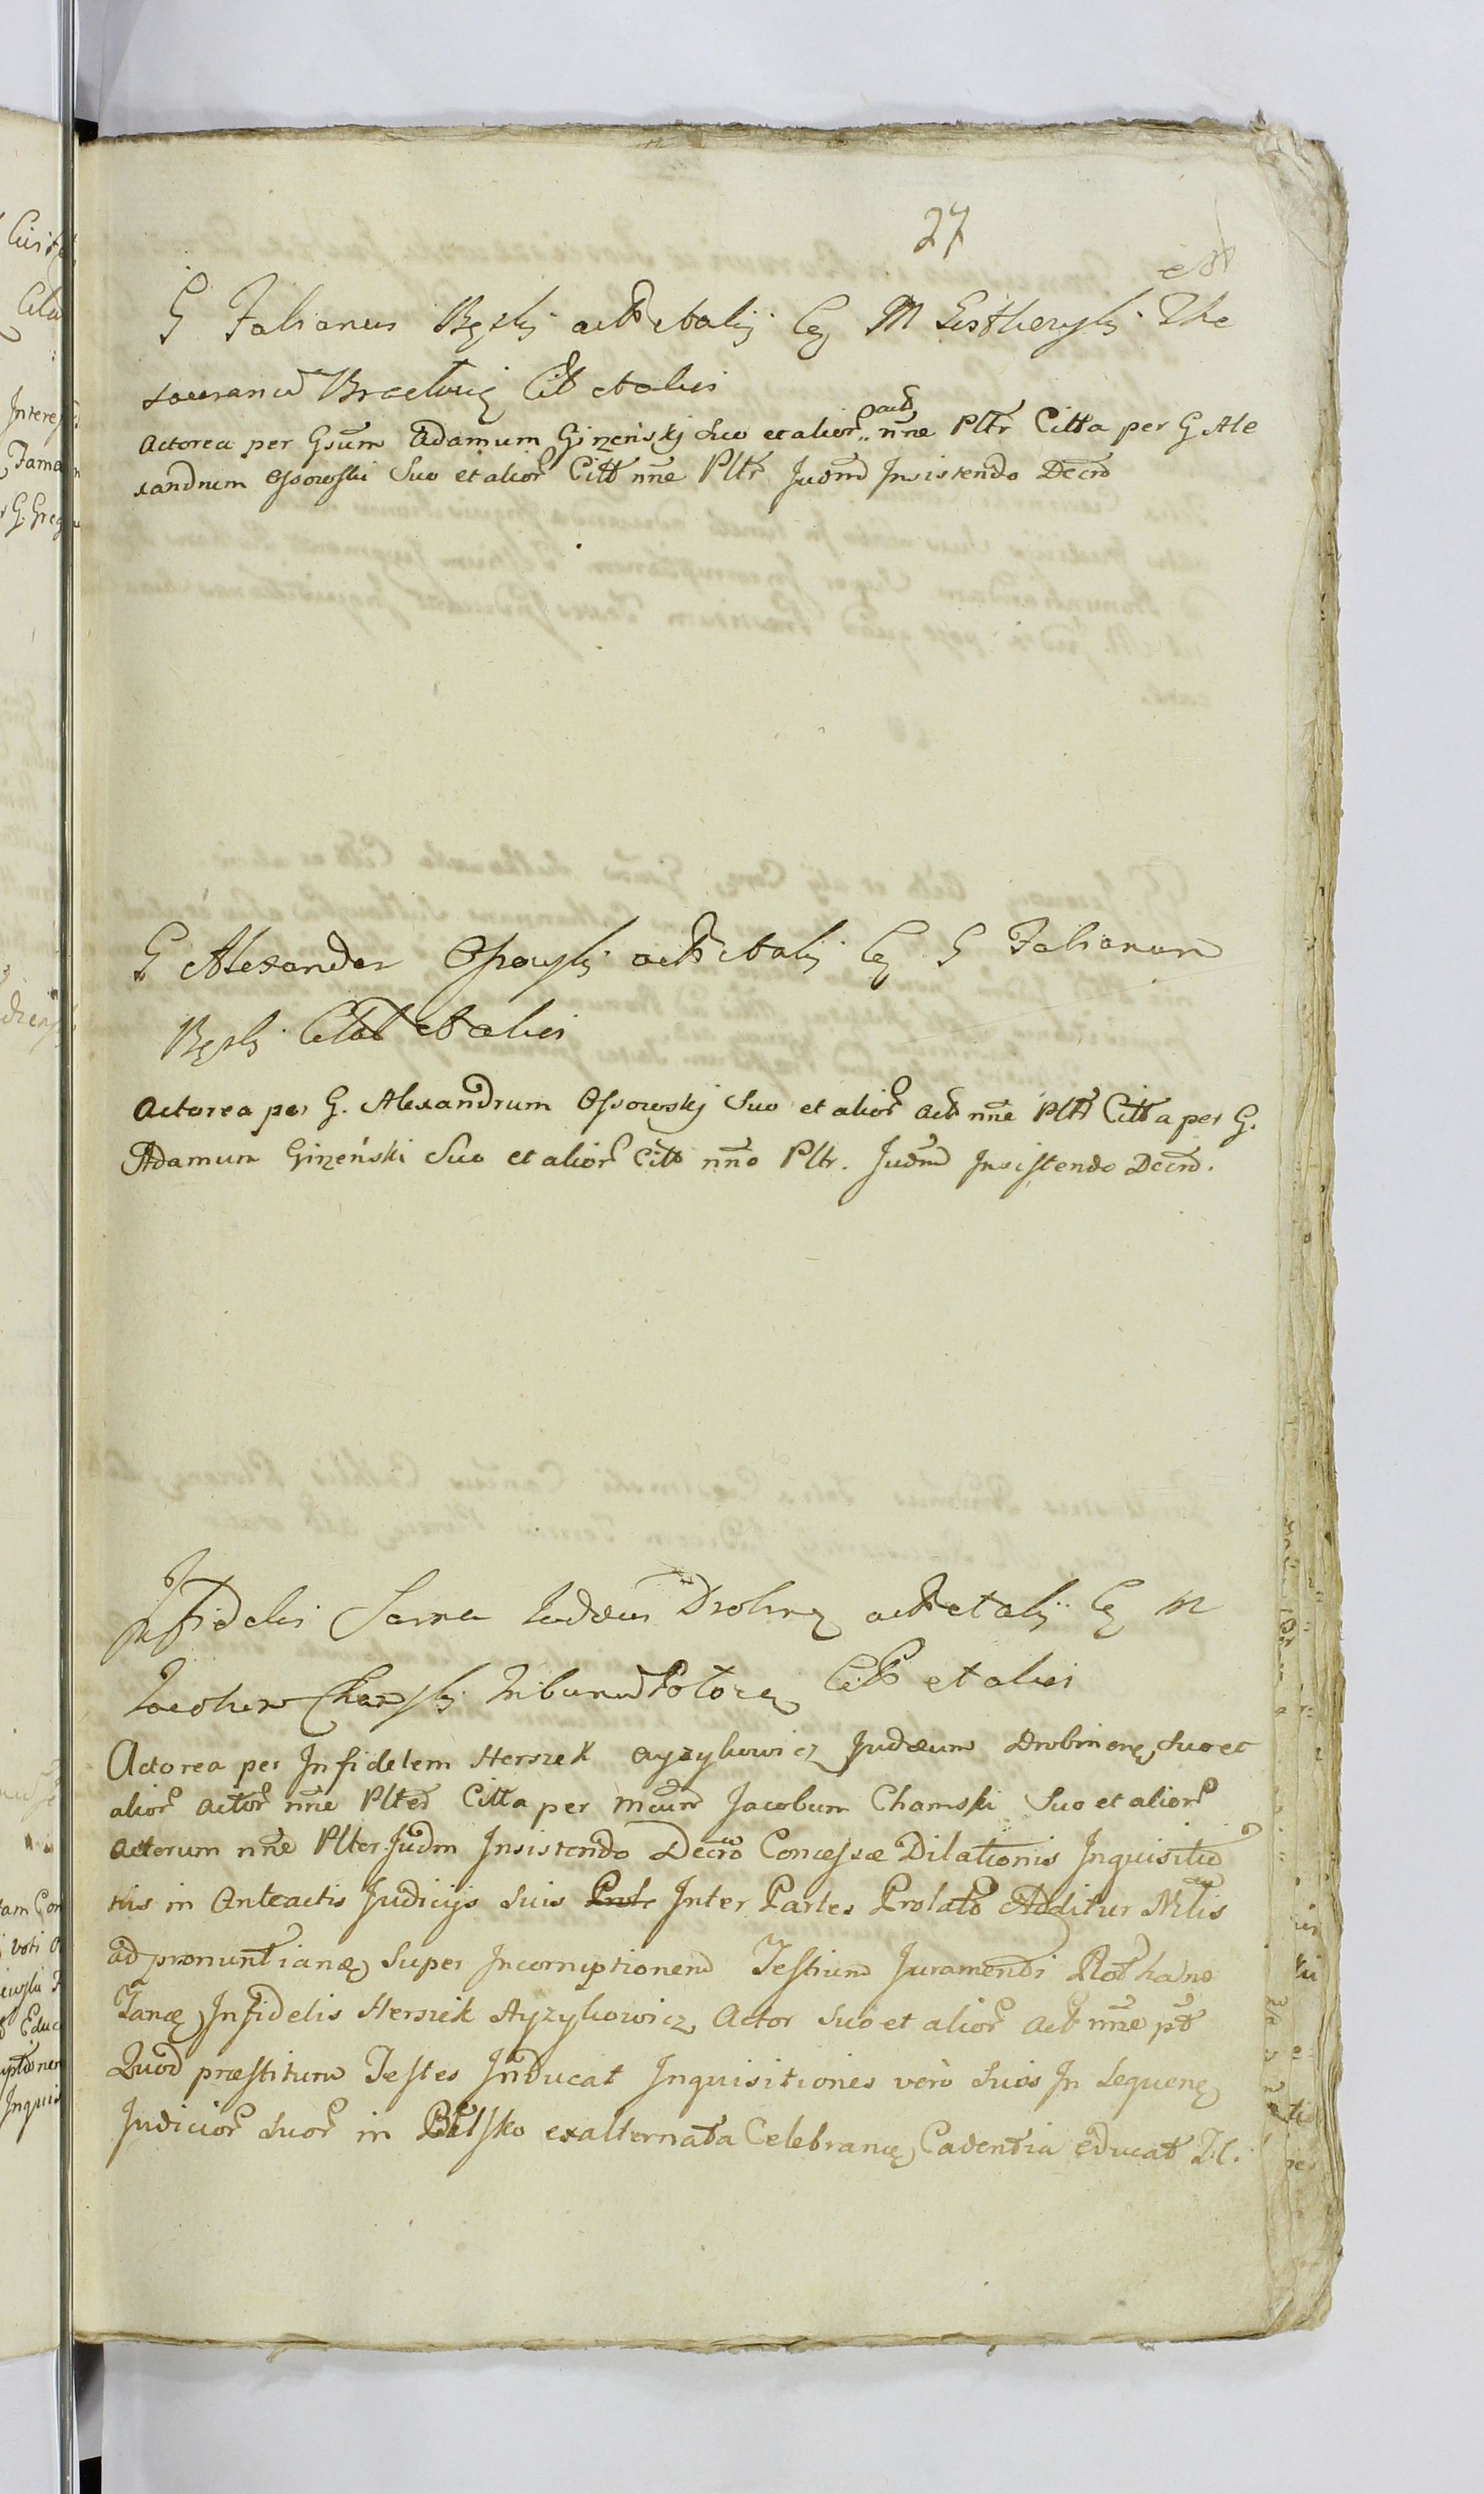 27
G Fabianus Bęski act et alij Cę M Tisthewski The
saurariu Braclavię Cit et alius
Actorea per Gsum Adamum Gizeński Suo et alior act nne Pltr Citta per G Ale
xandrum Ossowski Suo et alior Citt nne Pltr Judm Insistendo Decro
G Alexander Ossowski act et alij Cę G Fabianum
Bęski Citat et alius
Actorea per G. Alexandrum Ossowskj Suo et alior act nne Pltr Citta per G.
Adamum Gizeński Suo et alior Citt nne Pltr. Judm Insistendo Decro.
Infidelis Judæus Drobinę act et alij Cę M
Jacobum Chamski Tribunu Plocę Citt et alius
Actorea per Infidelem Herszek Ayzykowicz Judæum Drobinenę Suo et
alior actor nne Plter Citta per Mcum Jacobum Chamski Suo et alior
Actorum nne Plter. Judm Insistendo Decro Concessæ Dilationis Inquisitio
nis in Anteactis Judicijs Suis Inter Partes Prolato Additur Mtis
ad pronuntianę Super Incorruptionem Testium Juramendi Rotha no
Tanę Infidelis Herszek Ayzykowicz Actor Suo et alior act nne pt
Quod præstitum Testes Inducat Inquisitiones verò Suas In Sequenę
Judicior Suor in Bielsko exalternata Celebranę Cadentia educat